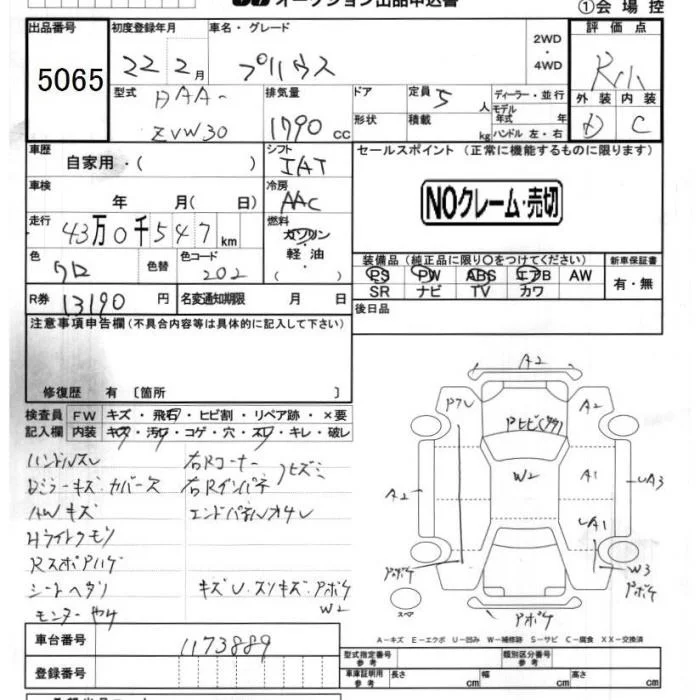 オークション出品申込書
①会場控
出品番号
5065
初度登録年月
22 2月
車名・グレード
プリウス
2WD
・
4WD
評価点
外装 内装
D C
型式
DAA-
ZVW30
排気量
1790 cc
ドア
形状
定員 5 人
積載 kg
ディーラー・並行
モデル年式 年
ハンドル 左・右
車歴
自家用・( )
シフト
IAT
セールスポイント (正常に機能するものに限ります)
NOクレーム・売切
車検
年 月( 日)
冷房
AAC
走行
43万0千547km
燃料
ガソリン
軽油
( )
色
クロ
色替
色コード
202
装備品 (純正品に限り○をつけてください)
PS PW ABS エアB AW
SR ナビ TV カワ
新車保証書
有・無
R券 13190 円
名変通知期限 月 日
後日品
注意事項申告欄(不具合内容等は具体的に記入して下さい)
修復歴 有 〔箇所 〕
検査員記入欄
FW キズ・飛石・ヒビ割・リペア跡・×要
内装 キズ・汚レ・コゲ・穴・スレ・キレ・破レ
ハンドルスレ
右Rコーナー
Dミラーキズ・カバース
右Rインパネ
ハケズミ
AWキズ
エンドパネルオサレ
Hライトクモリ
Rスポアハゲ
シートヘタリ
キズU・スリキズ・Pボケ
W2
モニターヤケ
A2
Pワレ
A2
FヒビC(ワダ)
W2
A1
A2
UA3
UA1
W3
Pボケ
Pボケ
Pボケ
スペア
A-キズ E-エクボ U-凹み W-補修跡 S-サビ C-腐食 XX-交換済
車台番号
1173889
登録番号
型式指定番号
参考
類別区分番号
参考
車庫証明用
参考
長さ cm
幅 cm
高さ cm